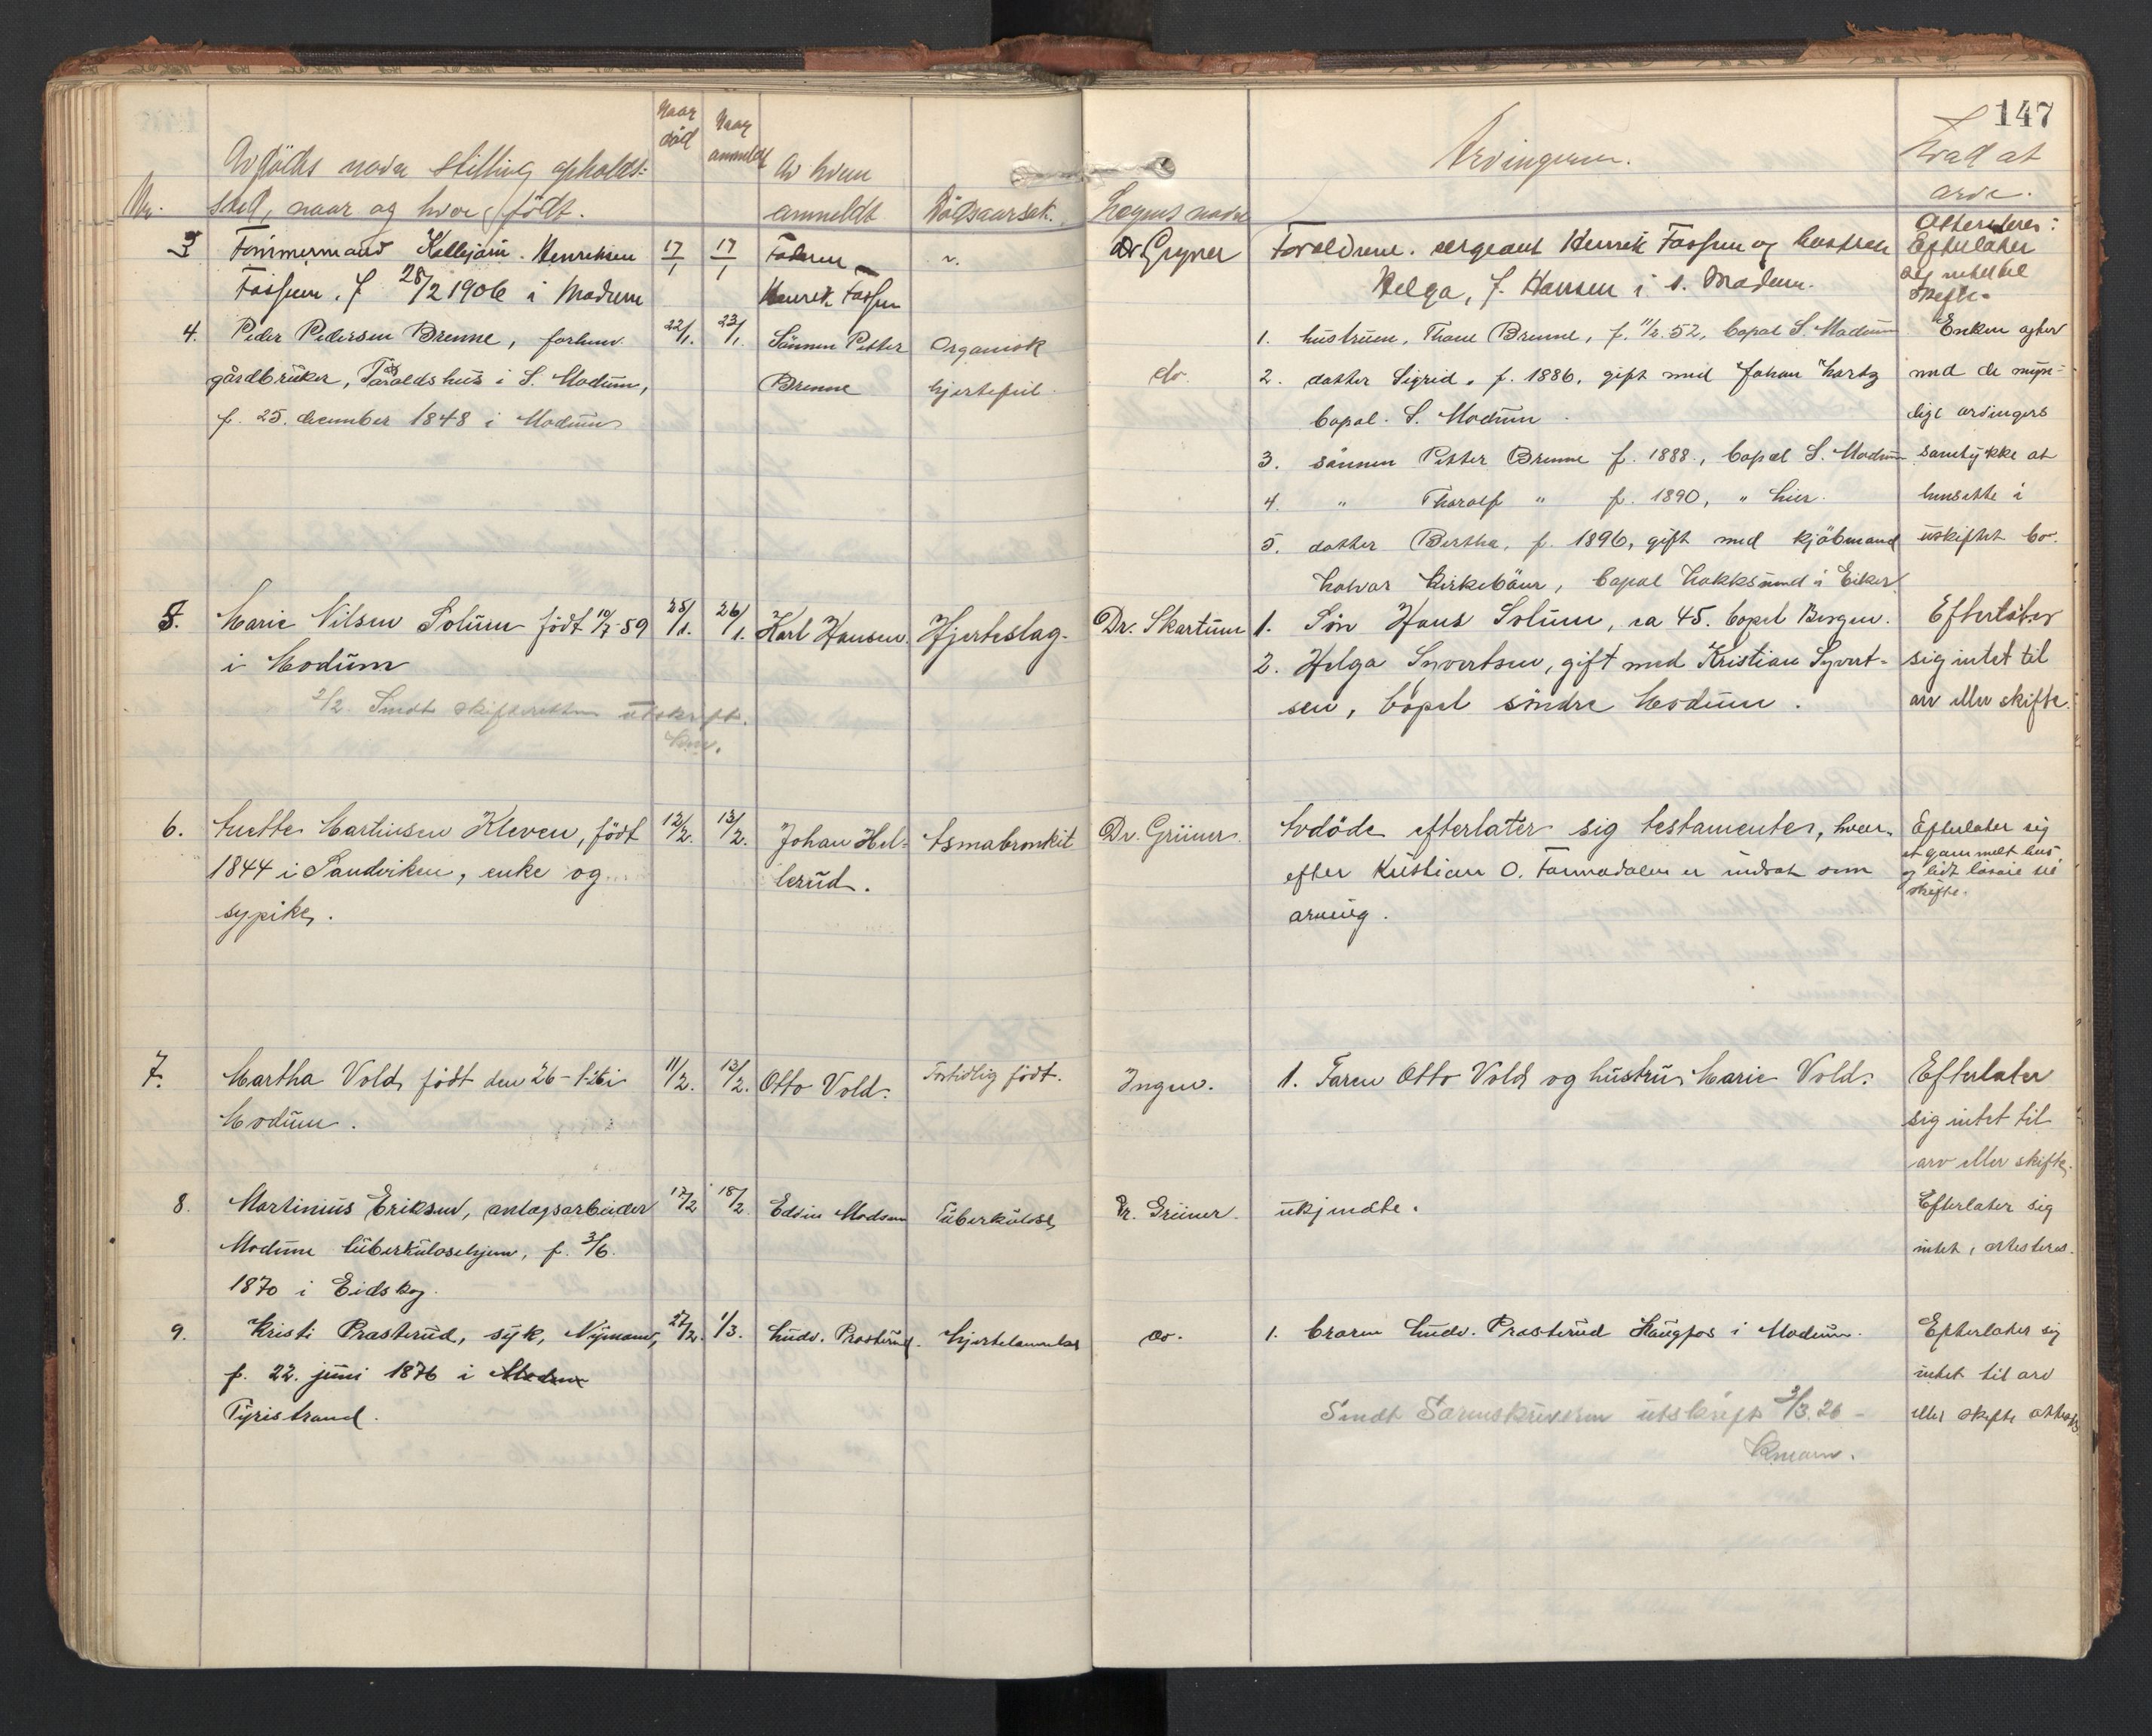 147
Nr.
Avdødes navn stilling opholds-
sted, naar og hvor født.
Naar
død
Naar
anmeldt
Av hvem
anmeldt
Dødsaarsak.
Lægens navn
Arvingerne.
Hvad at
arve.
3
Tømmermand Kallbjørn Henriksen
Fossum. f 28/2 1906 i Modum
17/1
17/1
Faderen
Henrik Fossum
Dr Gryner
Forældrene. sergeant Henrik Fossum og hustru
Helga, f. Hansen i s. Modum.
Attesteres:
Efterlater
sig intet til
skifte.
4. Peder Pedersen Brenne, forhenv.
gårdbruker, Taraldshus i S. Modum,
f. 25. december 1848 i Modum
22/1.
23/1.
Sønnen Petter
Brenne
Organisk
hjertefeil
do.
1. hustruen, Thone Brenne, f. 11/2.52, bopæl S. Modum
2. datter Sigrid, f. 1886, gift med Johan Hartz
bopæl. S. Modum.
3. sønnen Petter Brenne f. 1888, bopæl S. Modum
4. " Tharalf " f. 1890, " hier.
5. datter Bertha, f. 1896, gift med kjøbmand
Halvar Kirkebøen, bopæl Hokksund i Eiker.
Enken agter
med de myn-
dige arvingers
samtykke at
hensitte i
uskiftet bo.
5. Marie Nilsen Solum født 19/7-59
i Modum
2/2. Sendt skifteretten utskrift.
25/1.
26/1.
Karl Hansen.
Hjerteslag.
Dr. Skartum
1. Søn Hans Solum, ca 45. bopel Bergen.
2. Helga Syvertsen, gift med Kristian Syvert-
sen, bopel søndre Modum.
Efterlater
sig intet til
arv eller skifte.
6. Anette Martinsen Kleven, født
1844 i Sandviken, enke og
sypike.
12/2.
13/2.
Johan Hel-
lerud.
Asmabronkit
Dr. Grüner.
Avdøde efterlater sig testamente, hvor-
efter Kristian O. Formodalen er indsat som
arving.
Efterlater sig
et gammelt hus
og lidt løsøre til
skifte.
7. Martha Vold, født den 26-1-26 i
Modum.
11/2.
12/2.
Otto Vold.
Fortidlig født.
Ingen.
1. Faren Otto Vold og hustru Marie Vold.
Efterlater
sig intet til
arv eller skifte.
8. Martinius Eriksen, anlægsarbeider
Modum tuberkulosehjem, f. 3/6.
1870 i Eidskog.
17/2
18/2
Edvin Modsen
Tuberkulose
Dr. Grüner.
ukjendte.
Efterlater sig
intet, attesteres.
9. Kristi Prasterud, syk, Nymoen,
f. 22. juni 1876 i Modum
Tyristrand.
27/2.
1/3.
Ludv. Prasterud.
Hjertelammelse
do.
1. broren Ludv. Prasterud Haugfos i Modum.
Sendt Sorenskriveren utskrift 3/3.26 -
Efterlater sig
intet til arv
eller skifte attest.